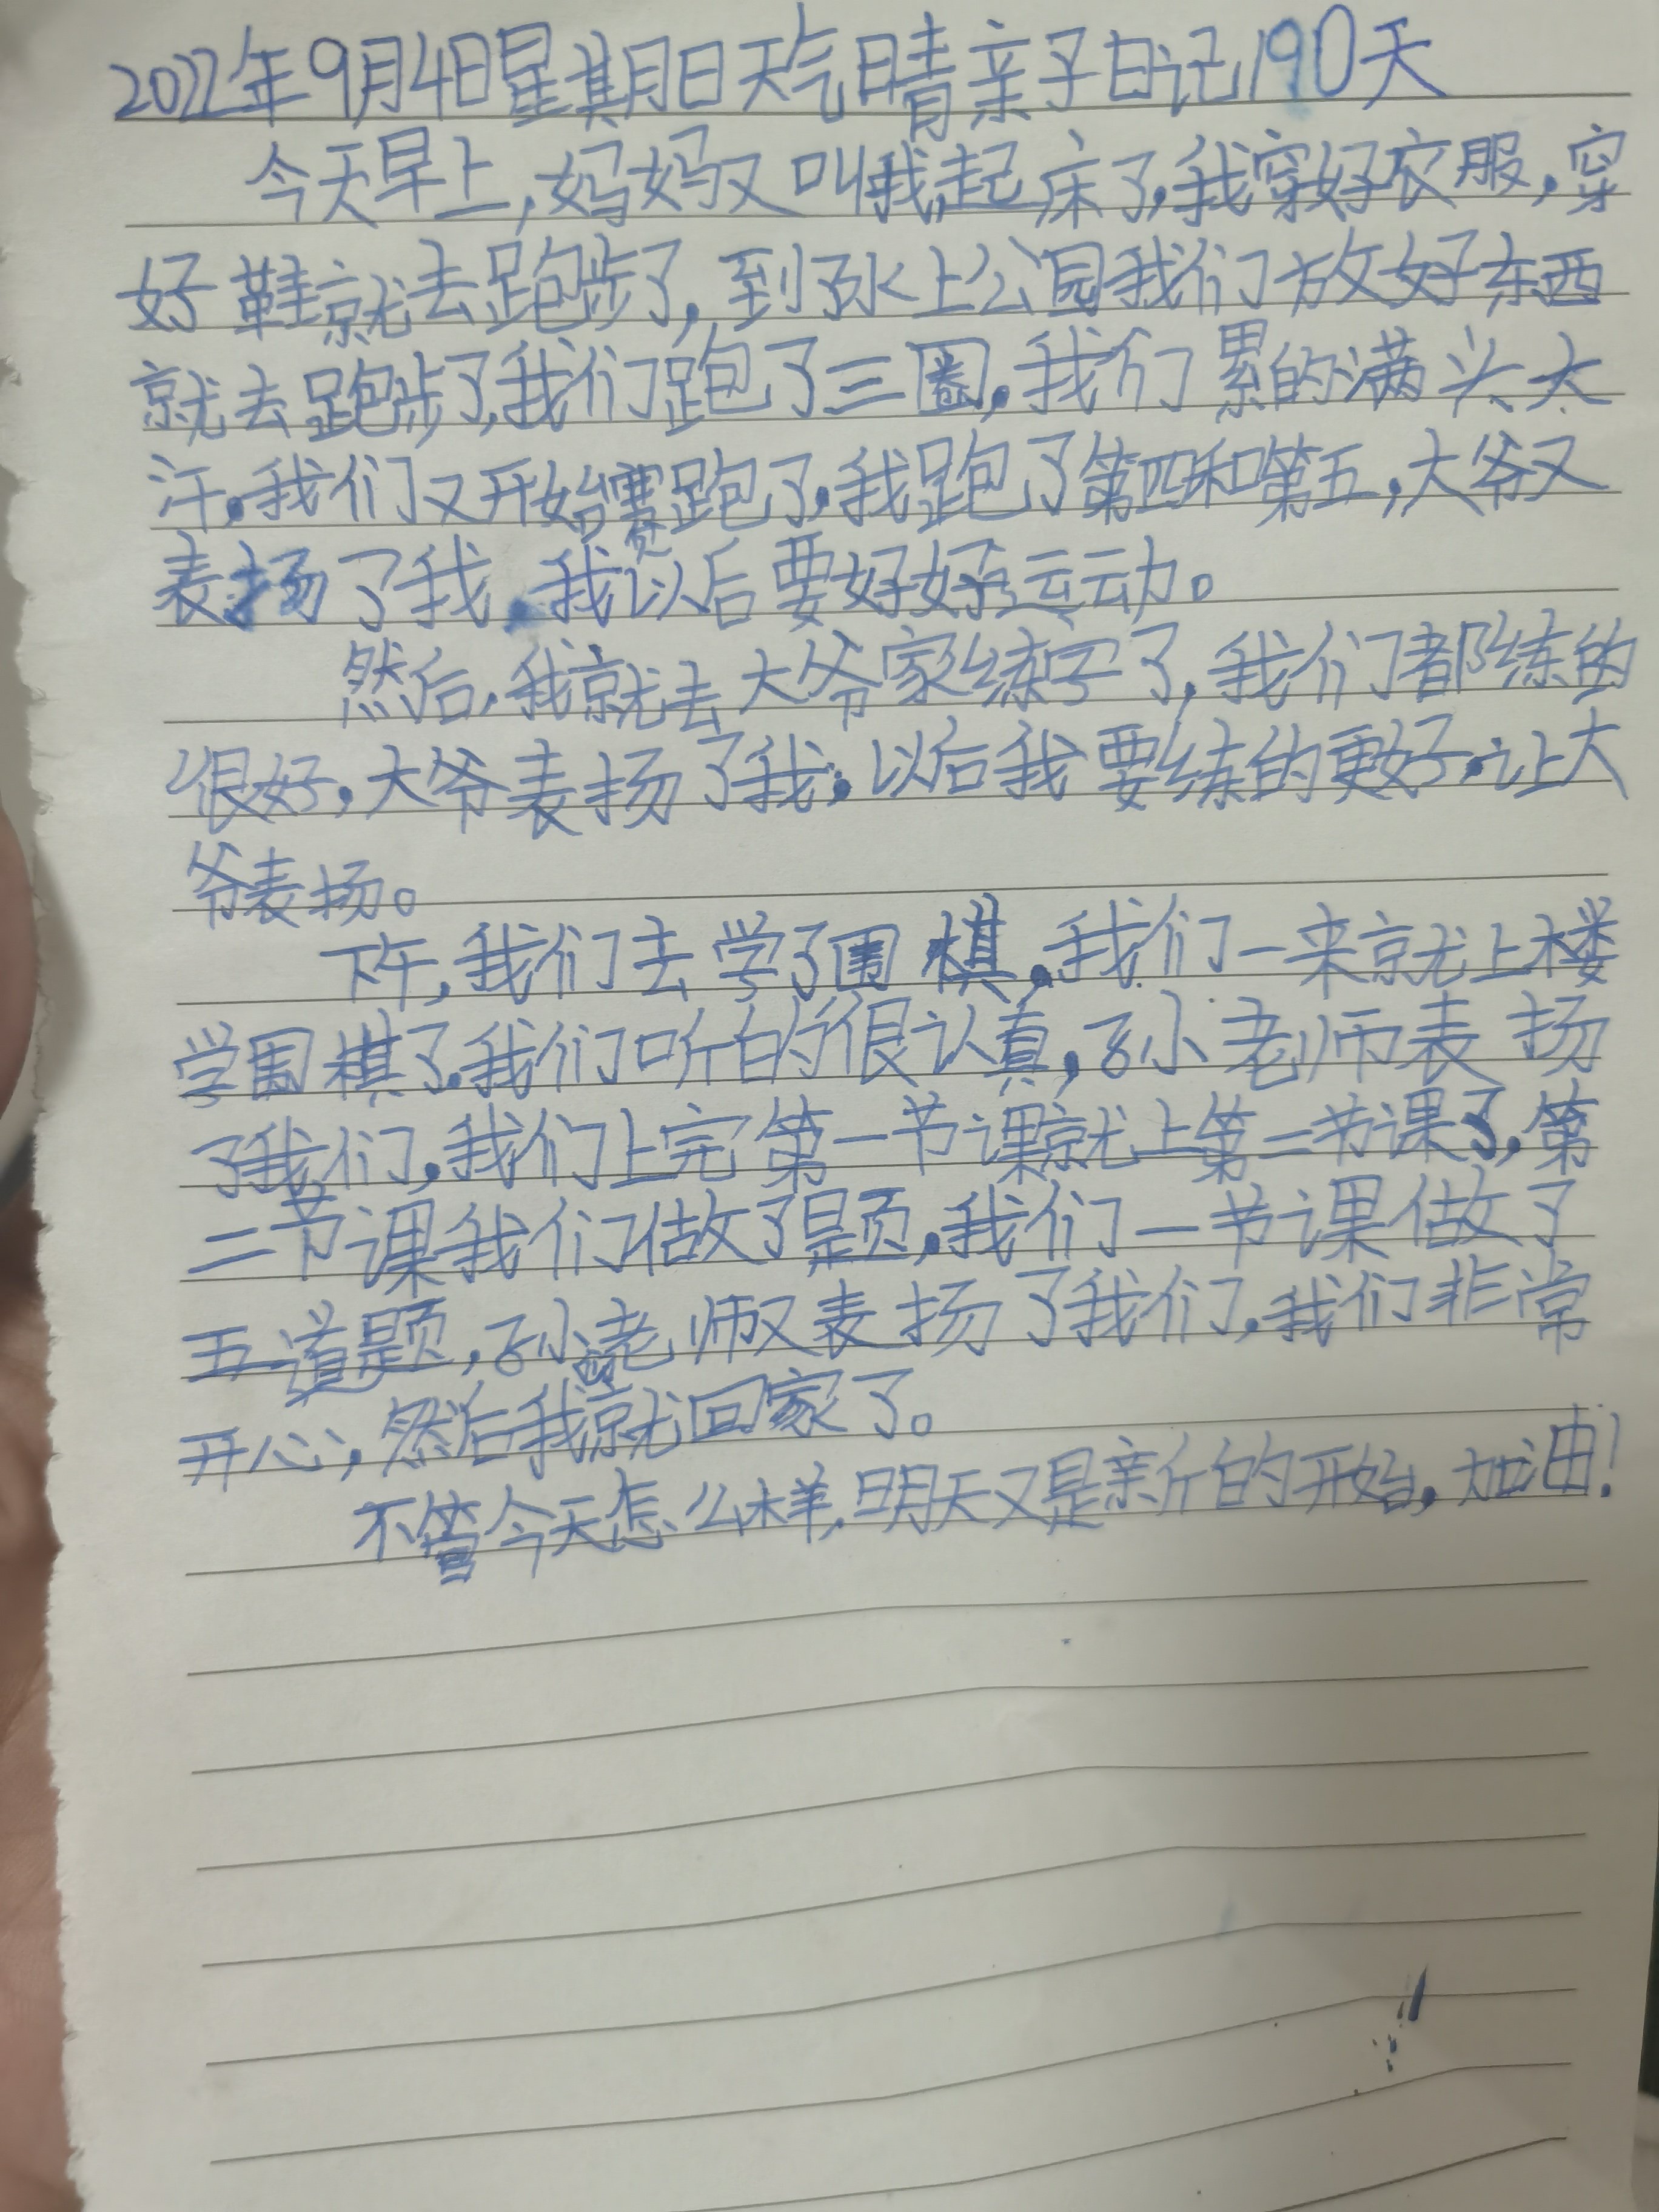 2022年9月4日星期日天气晴亲子日记190天
今天早上,妈妈又叫我起床了,我穿好衣服,穿
好鞋就去跑步了,到了水上公园我们放好东西
就去跑步了,我们跑了三圈,我们累的满头大
汗,我们又开始赛跑了,我跑了第四和第五,大爷又
表扬了我,我以后要好好运动。
然后,我就去大爷家练字了,我们都练的
很好,大爷表扬了我,以后我要练的更好,让大
爷表扬。
下午,我们去学了围棋,我们一来就上楼
学围棋了,我们听的很认真,孙老师表扬
了我们,我们上完第一节课就上第二节课了,第
二节课我们做了题,我们一节课做了
五道题,孙老师又表扬了我们,我们非常
开心,然后我就回家了。
不管今天怎么样,明天又是新的开始,加油!